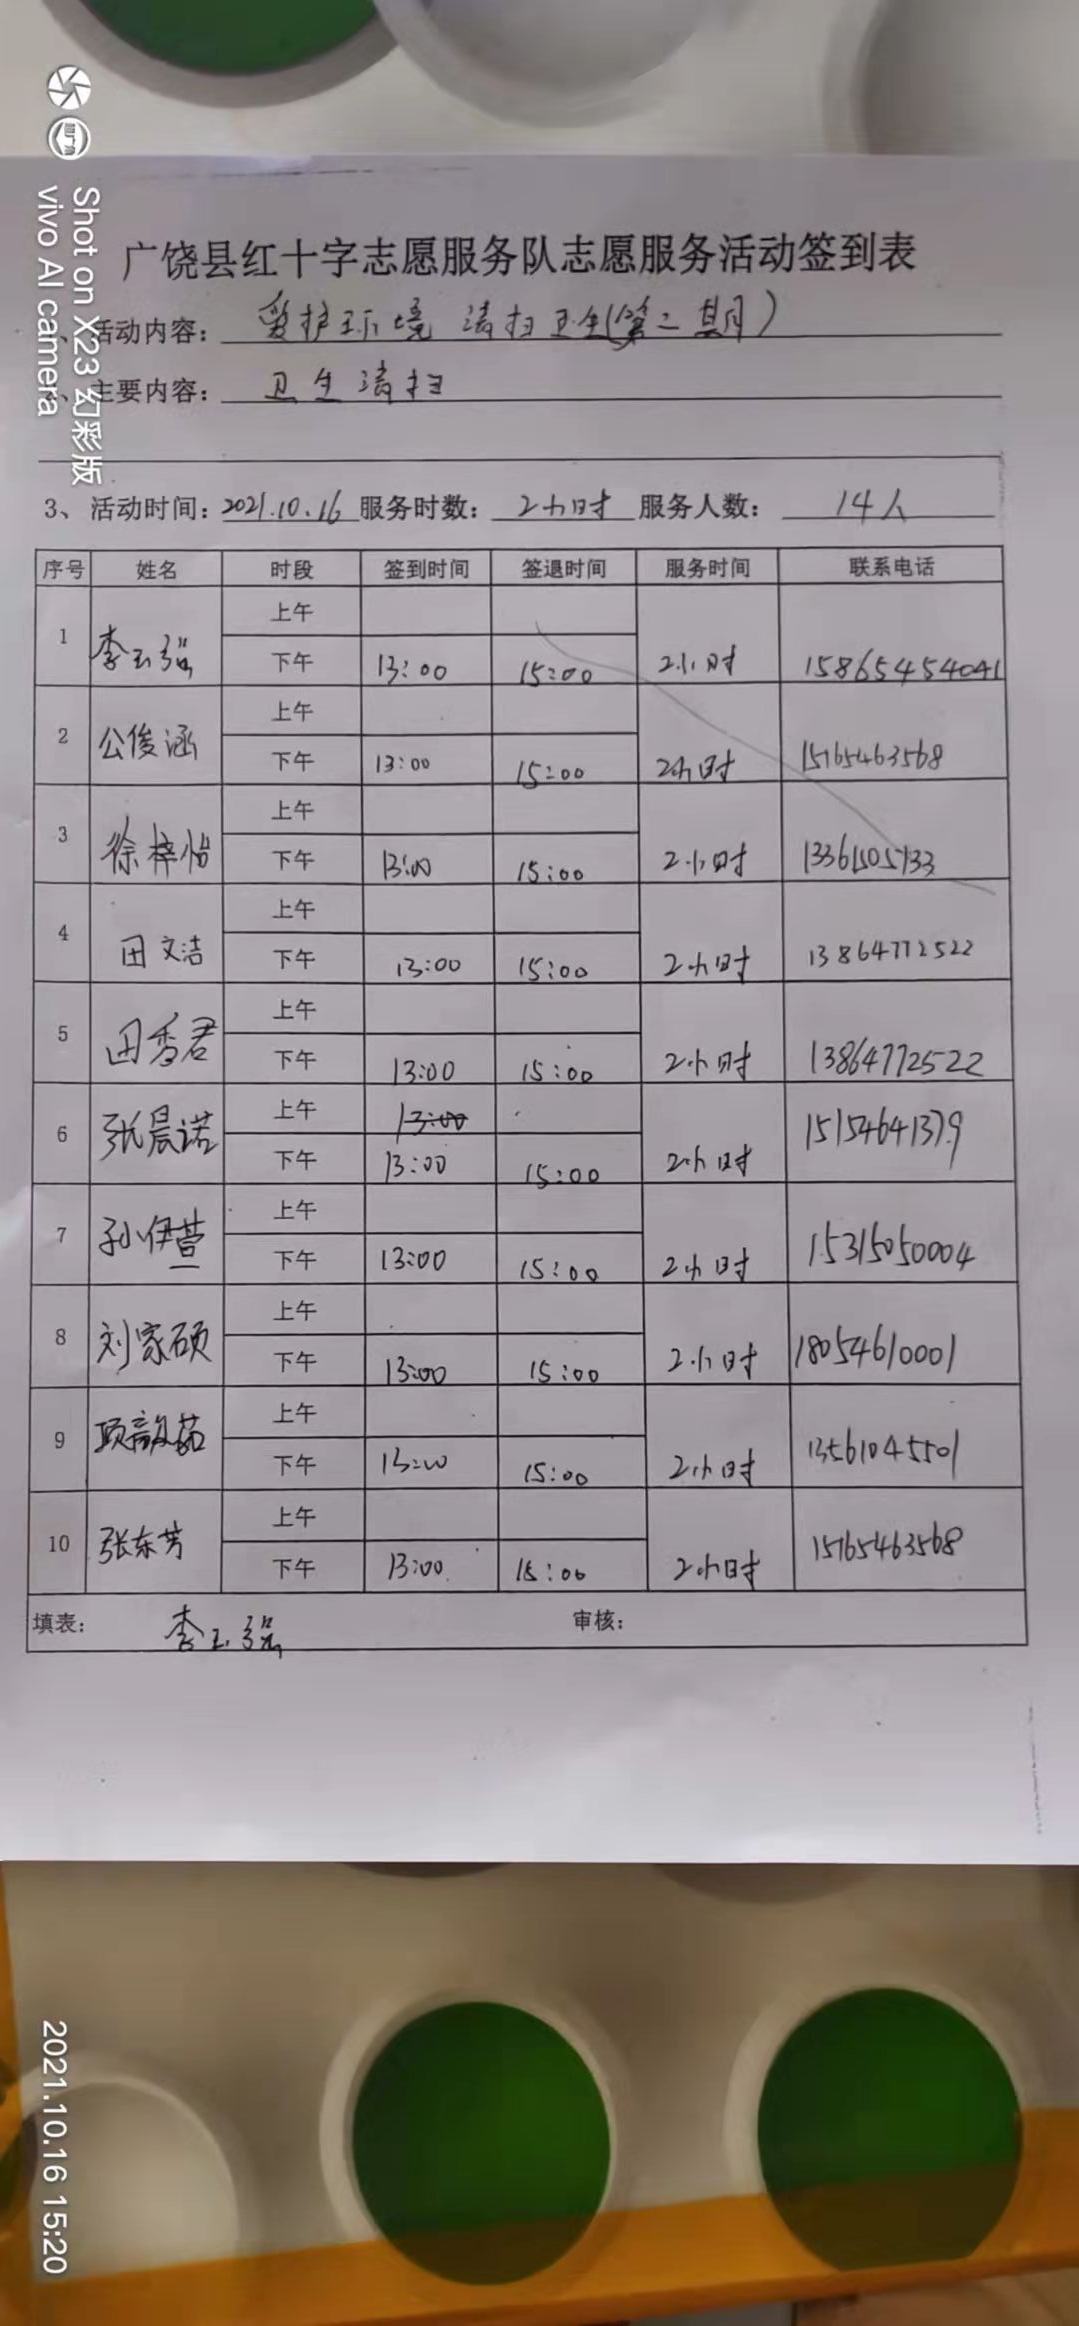 广饶县红十字志愿服务队志愿服务活动签到表
、活动内容：爱护环境 清扫卫生(第二期)
、主要内容：卫生清扫
3、活动时间：2021.10.16 服务时数：2小时 服务人数：14人
序号 姓名 时段 签到时间 签退时间 服务时间 联系电话
1 李玉强 上午
下午 13:00 15:00 2小时 15865454041
2 公俊涵 上午
下午 13:00 15:00 2小时 15165463568
3 徐梓怡 上午
下午 13:00 15:00 2小时
4 田文洁 上午
下午 13:00 15:00 2小时 13864772522
5 田香君 上午
下午 13:00 15:00 2小时 13864772522
6 张晨诺 上午 13:00
下午 13:00 15:00 2小时 15154641379
7 孙伊萱 上午
下午 13:00 15:00 2小时 15315050004
8 刘家硕 上午
下午 13:00 15:00 2小时 18054610001
9 上午
下午 13:00 15:00 2小时 13561045501
10 张东芳 上午
下午 13:00 15:00 2小时 15165463568
填表：李玉强 审核：
Shot on X23 幻彩版
vivo AI camera
2021.10.16 15:20